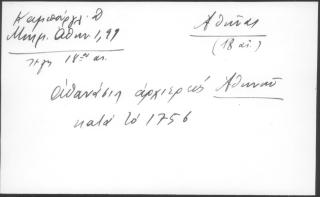 Καμπούρογ. Δ
Μνημ. Αθην 1, 99
τέλη 18ου αι.
Ἀθῆναι
(18 αἰ.)
Ἀθανάσιος ἀρχιερεὺς Ἀθηνῶν
κατὰ τὸ 1756